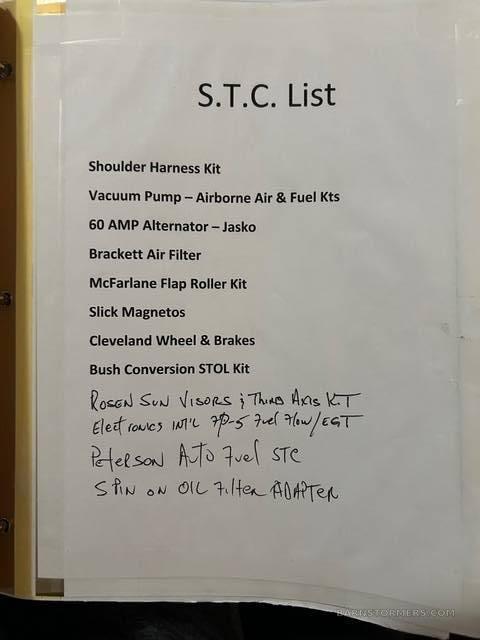 S.T.C. List
Shoulder Harness Kit
Vacuum Pump – Airborne Air & Fuel Kts
60 AMP Alternator – Jasko
Brackett Air Filter
McFarlane Flap Roller Kit
Slick Magnetos
Cleveland Wheel & Brakes
Bush Conversion STOL Kit
Rosen Sun Visors & Third Axis KIT
Electronics INT'L FP-5 Fuel Flow/EGT
Peterson Auto Fuel STC
SPIN ON OIL Filter ADAPTER
BARNSTORMERS.COM